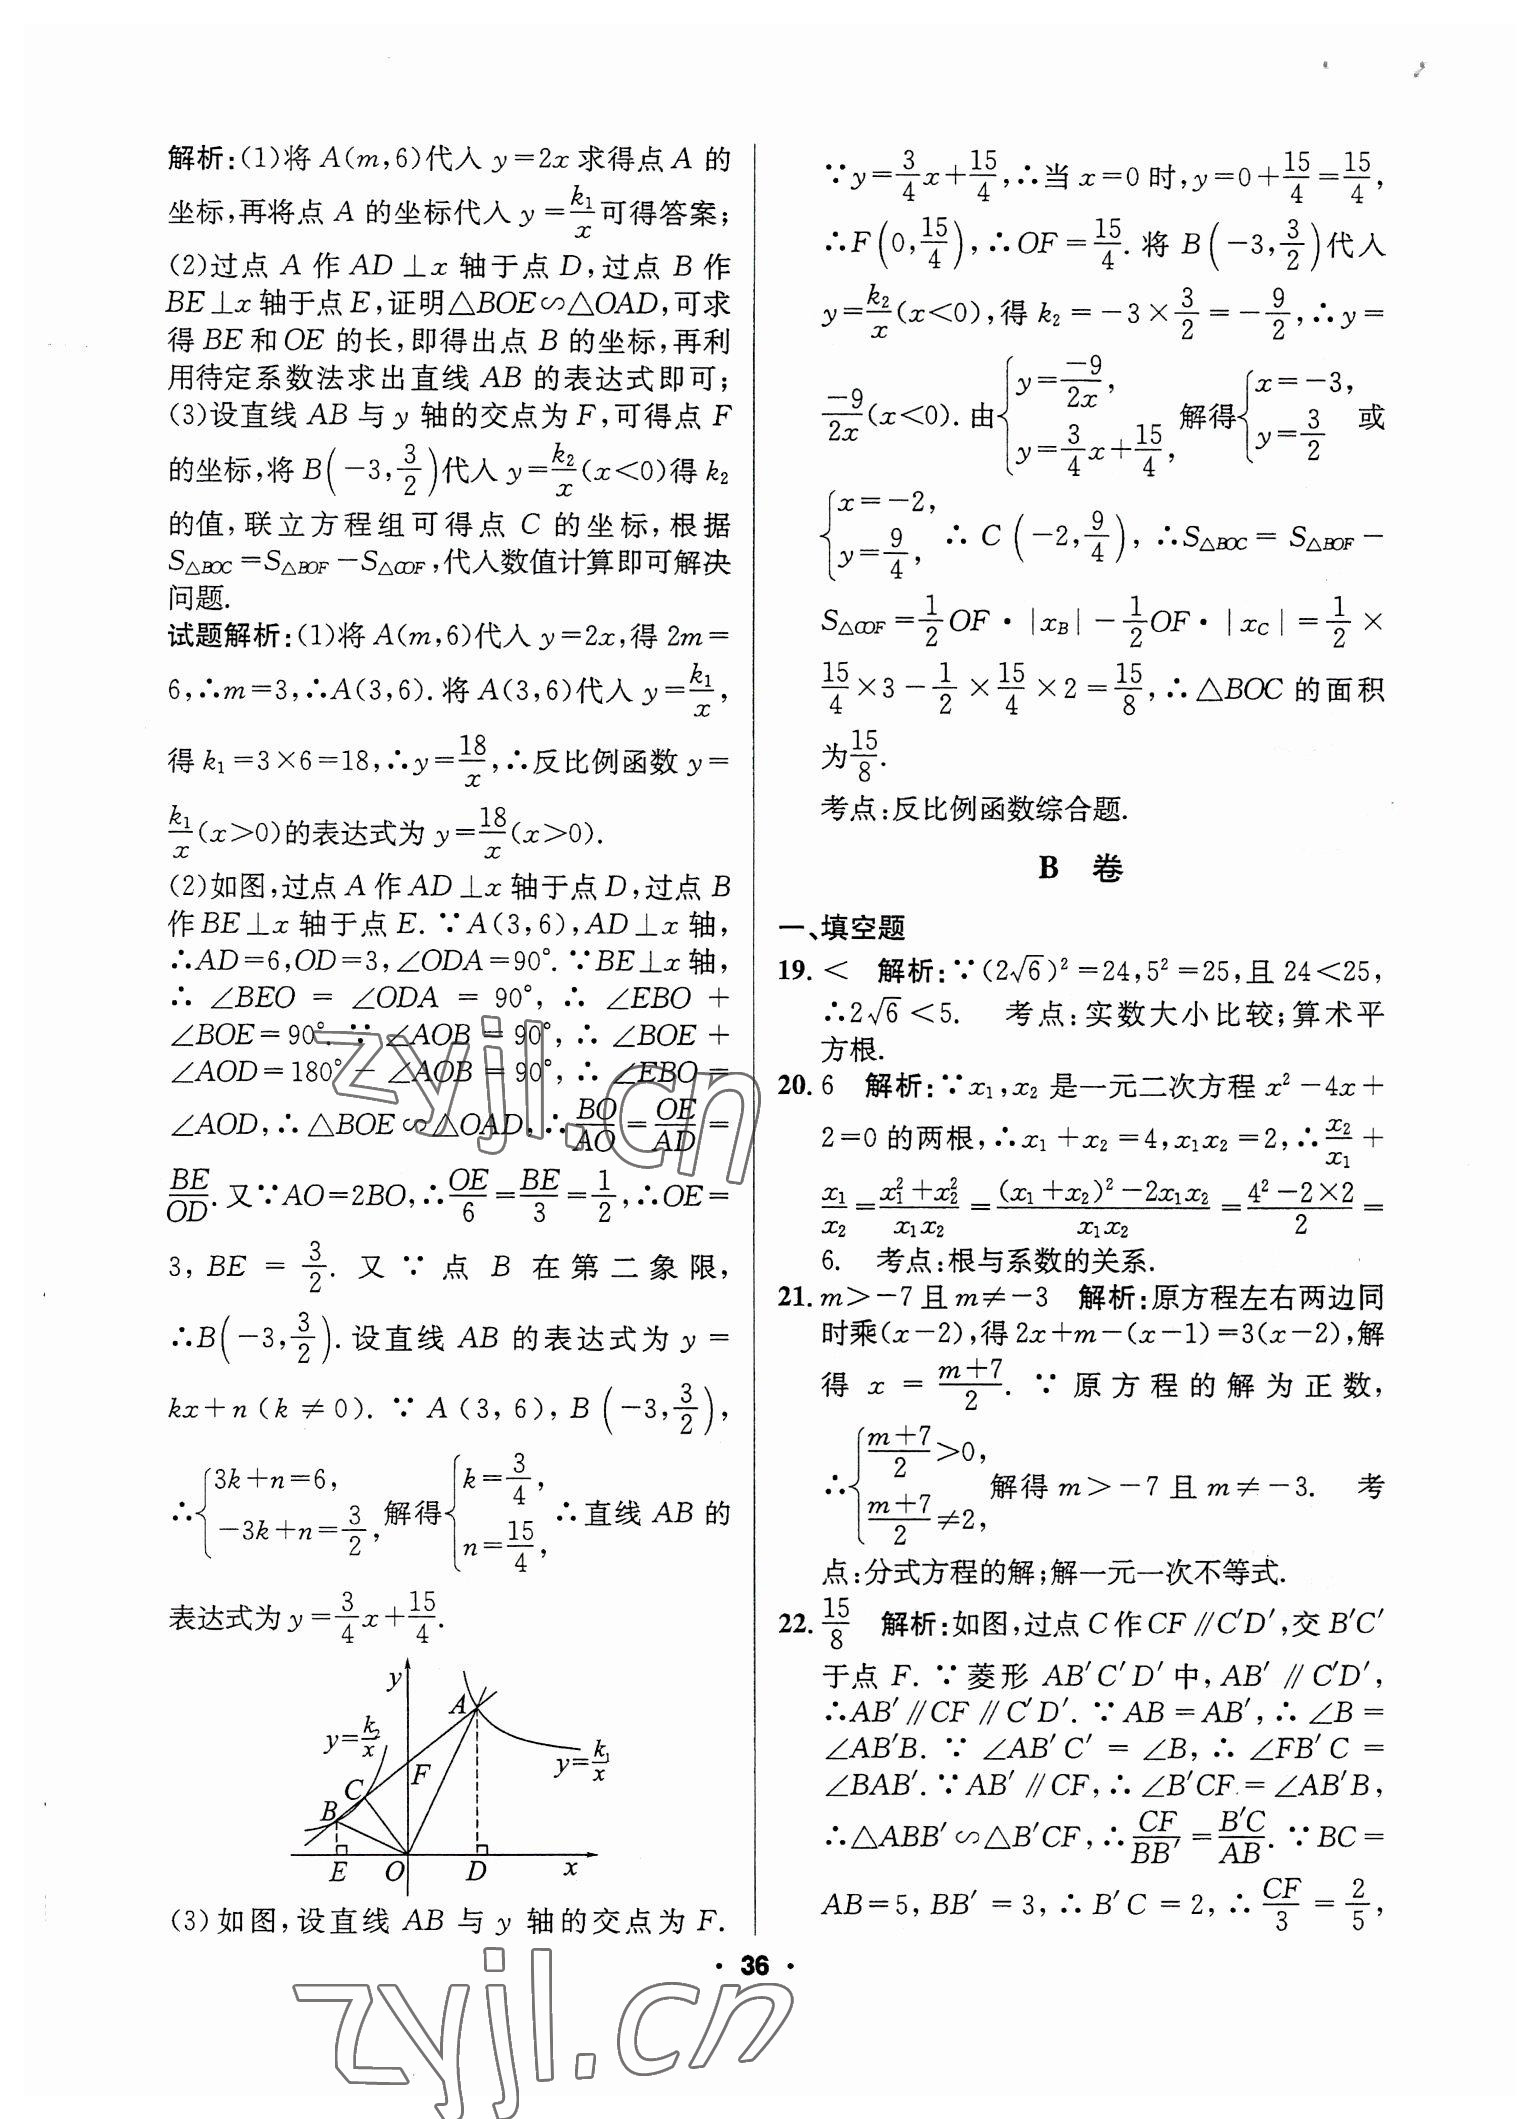 解析:(1)将 A(m,6)代入 y=2x 求得点 A 的
坐标,再将点 A 的坐标代入 y=k₁/x可得答案;
(2)过点 A 作 AD⊥x 轴于点 D,过点 B 作
BE⊥x 轴于点 E,证明△BOE∽△OAD,可求
得 BE 和 OE 的长,即得出点 B 的坐标,再利
用待定系数法求出直线 AB 的表达式即可;
(3)设直线 AB 与 y 轴的交点为 F,可得点 F
的坐标,将 B(-3,3/2)代入 y=k₂/x(x<0)得 k₂
的值,联立方程组可得点 C 的坐标,根据
S△BOC=S△BOF-S△COF,代入数值计算即可解决
问题.
试题解析:(1)将 A(m,6)代入 y=2x,得 2m=
6,∴m=3,∴A(3,6).将 A(3,6)代入 y=k₁/x,
得 k₁=3×6=18,∴y=18/x,∴反比例函数 y=
k₁/x(x>0)的表达式为 y=18/x(x>0).
(2)如图,过点 A 作 AD⊥x 轴于点 D,过点 B
作 BE⊥x 轴于点 E.∵A(3,6),AD⊥x 轴,
∴AD=6,OD=3,∠ODA=90°.∵BE⊥x 轴,
∴∠BEO=∠ODA=90°,∴∠EBO+
∠BOE=90°.∵∠AOB=90°,∴∠BOE+
∠AOD=180°-∠AOB=90°,∴∠EBO=
∠AOD,∴△BOE∽△OAD,∴BO/AO=OE/AD=
BE/OD.又∵AO=2BO,∴OE/6=BE/3=1/2,∴OE=
3,BE=3/2.又∵点 B 在第二象限,
∴B(-3,3/2).设直线 AB 的表达式为 y=
kx+n(k≠0).∵A(3,6),B(-3,3/2),
∴{3k+n=6, -3k+n=3/2,解得{k=3/4, n=15/4,∴直线 AB 的
表达式为 y=3/4x+15/4.
y
A
y=k₂/x
y=k₁/x
F
C
B
E O D x
(3)如图,设直线 AB 与 y 轴的交点为 F.
∵y=3/4x+15/4,∴当 x=0 时,y=0+15/4=15/4,
∴F(0,15/4),∴OF=15/4.将 B(-3,3/2)代入
y=k₂/x(x<0),得 k₂=-3×3/2=-9/2,∴y=
-9/2x(x<0).由{y=-9/2x, y=3/4x+15/4,解得{x=-3, y=3/2 或
{x=-2, y=9/4,∴C(-2,9/4),∴S△BOC=S△BOF-
S△COF=1/2OF·|xB|-1/2OF·|xC|=1/2×
15/4×3-1/2×15/4×2=15/8,∴△BOC 的面积
为15/8.
考点:反比例函数综合题.
B 卷
一、填空题
19. < 解析:∵(2√6)²=24,5²=25,且 24<25,
∴2√6<5. 考点:实数大小比较;算术平
方根.
20. 6 解析:∵x₁,x₂ 是一元二次方程 x²-4x+
2=0 的两根,∴x₁+x₂=4,x₁x₂=2,∴x₂/x₁+
x₁/x₂=(x₁²+x₂²)/x₁x₂=((x₁+x₂)²-2x₁x₂)/x₁x₂=(4²-2×2)/2=
6. 考点:根与系数的关系.
21. m>-7 且 m≠-3 解析:原方程左右两边同
时乘(x-2),得 2x+m-(x-1)=3(x-2),解
得 x=(m+7)/2.∵原方程的解为正数,
∴{(m+7)/2>0, (m+7)/2≠2,解得 m>-7 且 m≠-3. 考
点:分式方程的解;解一元一次不等式.
22. 15/8 解析:如图,过点 C 作 CF∥C′D′,交 B′C′
于点 F.∵菱形 AB′C′D′中,AB′∥C′D′,
∴AB′∥CF∥C′D′.∵AB=AB′,∴∠B=
∠AB′B.∵∠AB′C′=∠B,∴∠FB′C=
∠BAB′.∵AB′∥CF,∴∠B′CF=∠AB′B,
∴△ABB′∽△B′CF,∴CF/BB′=B′C/AB.∵BC=
AB=5,BB′=3,∴B′C=2,∴CF/3=2/5,
· 36 ·
zyjl.cn
zyjl.cn